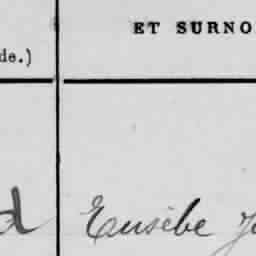 ET SURNO
de.)
d Eusèbe